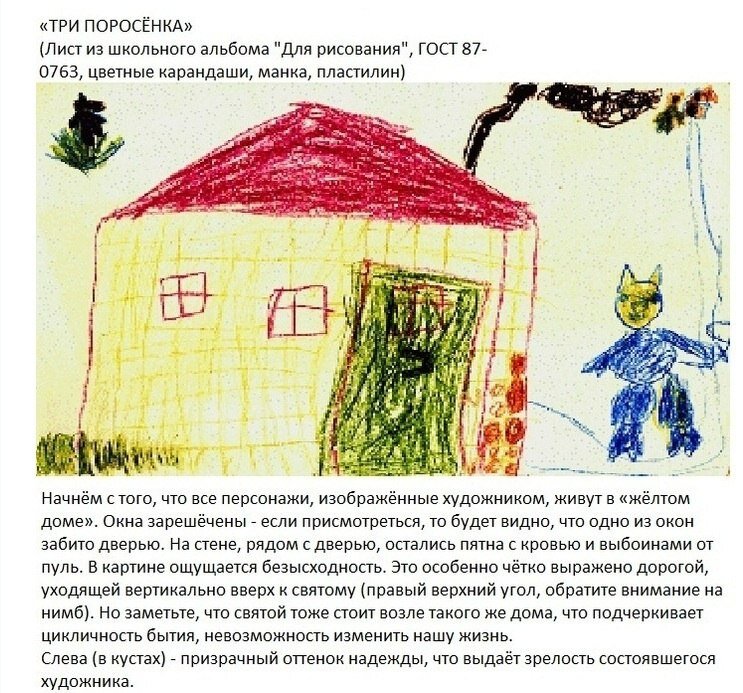 «ТРИ ПОРОСЁНКА»
(Лист из школьного альбома "Для рисования", ГОСТ 87-
0763, цветные карандаши, манка, пластилин)
Начнём с того, что все персонажи, изображённые художником, живут в «жёлтом
доме». Окна зарешёчены - если присмотреться, то будет видно, что одно из окон
забито дверью. На стене, рядом с дверью, остались пятна с кровью и выбоинами от
пуль. В картине ощущается безысходность. Это особенно чётко выражено дорогой,
уходящей вертикально вверх к святому (правый верхний угол, обратите внимание на
нимб). Но заметьте, что святой тоже стоит возле такого же дома, что подчеркивает
цикличность бытия, невозможность изменить нашу жизнь.
Слева (в кустах) - призрачный оттенок надежды, что выдаёт зрелость состоявшегося
художника.